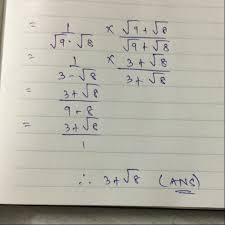 = 1 / √9 - √8 × √9 + √8 / √9 + √8
= 1 / 3 - √8 × 3 + √8 / 3 + √8
= 3 + √8 / 9 - 8
= 3 + √8 / 1
∴ 3 + √8 (ANS)